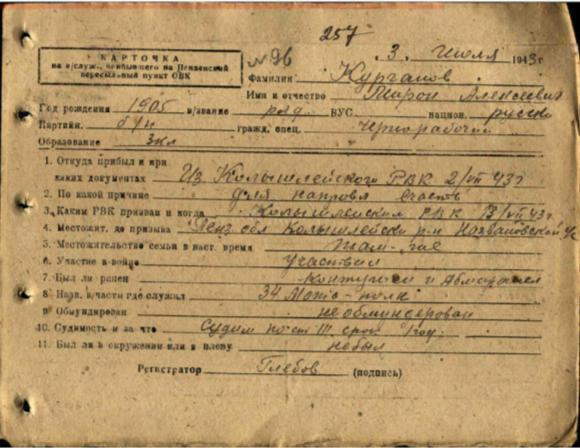 257
КАРТОЧКА № 96 3. Июля 1943г
на в/служ., прибывшего на Пензенский
пересыльный пункт ОВК
Фамилия Курганов
Имя и отчество Алексеевич
Год рождения 1905 в/звание ряд. ВУС национ. русск
Партийн. б/п гражд. спец. Чернорабочий
Образование 3 кл
1. Откуда прибыл и при
каких документах Из Колышлейского РВК 2/VII 43г
2. По какой причине для направл в часть
3. Каким РВК призван и когда Колышлейским РВК /VII 43г
4. Местожит. до призыва Пенз обл Колышлейский р-н
5. Местожительство семьи в наст. время Там-же
6. Участие в войне участвовал
7. Был ли ранен контужен и
8. Назв. в/части где служил 34 Мото-полк
9. Обмундирован необмундирован
10. Судимость и за что Судим по ст III срок 1 год
11. Был ли в окружении или в плену не был
Регистратор Глебов (подпись)